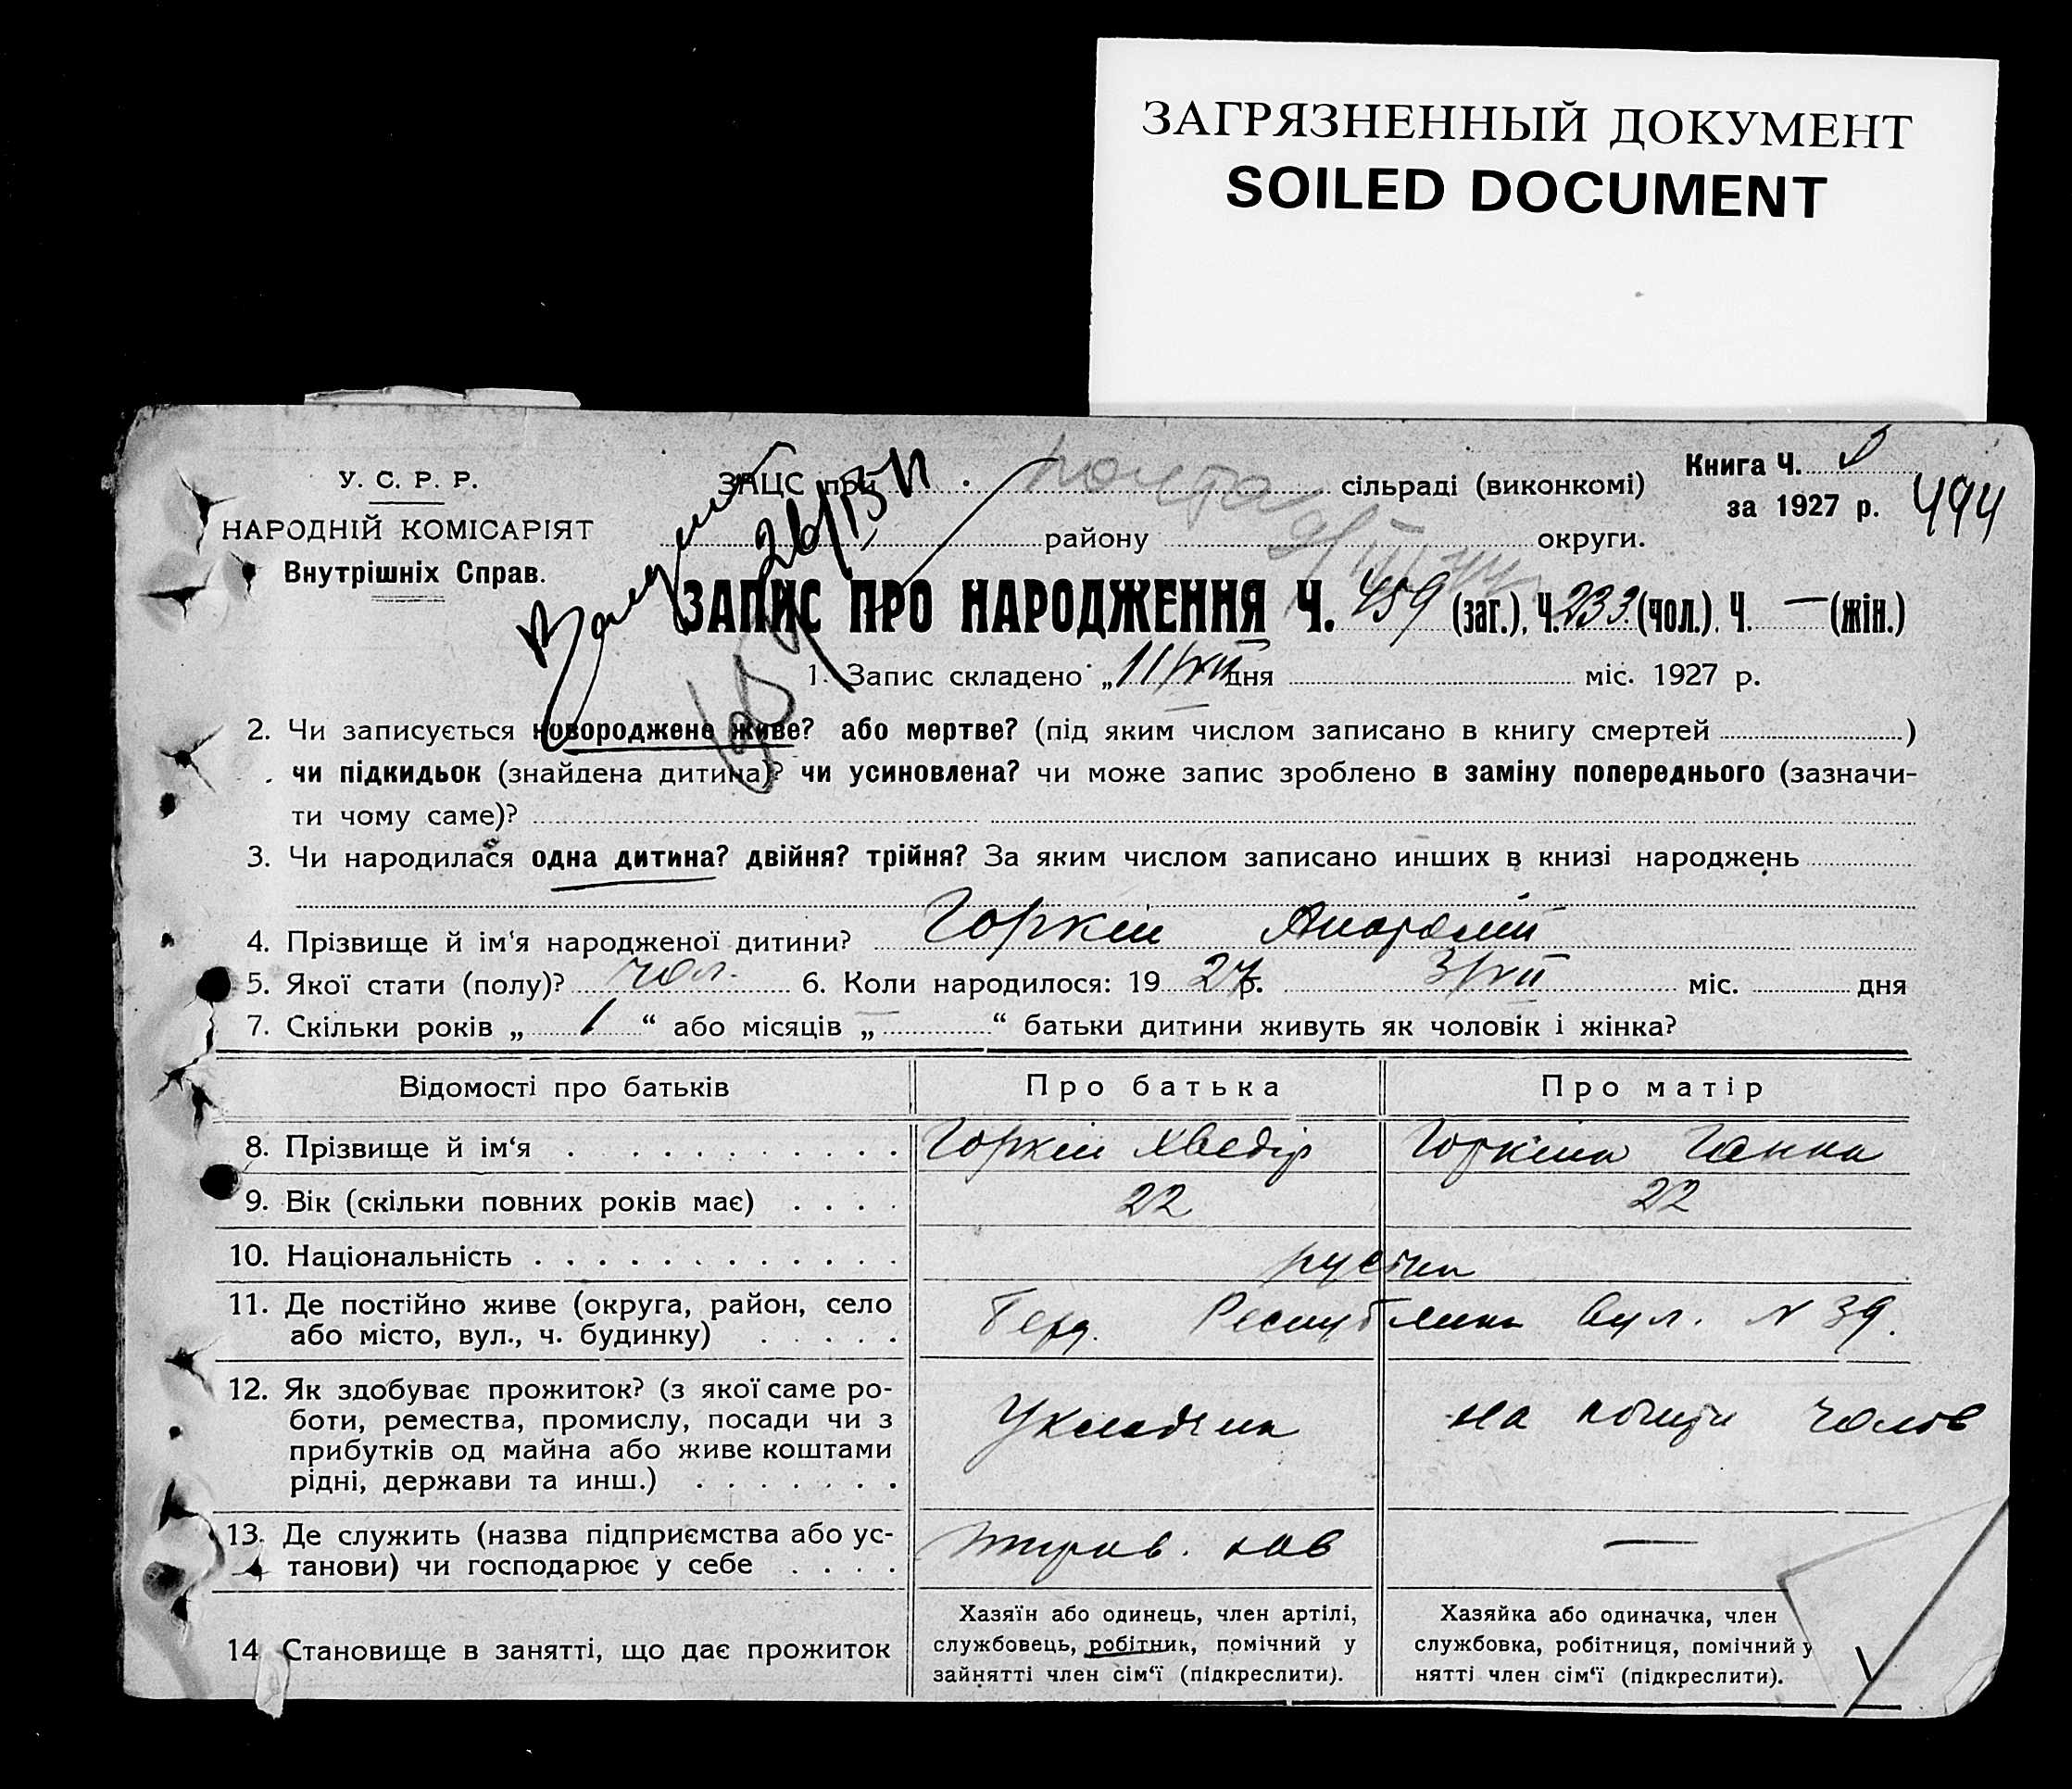 ЗАГРЯЗНЕННЫЙ ДОКУМЕНТ
SOILED DOCUMENT
У. С. Р. Р.
НАРОДНІЙ КОМІСАРІЯТ
Внутрішніх Справ.
ЗАЦС при сільраді (виконкомі)
району округи.
Книга Ч.
за 1927 р. 494
ЗАПИС ПРО НАРОДЖЕННЯ Ч. 459 (заг.), Ч. 233 (чол.). Ч. — (жін.)
1. Запис складено „11/VII дня міс. 1927 р.
2. Чи записується новороджене живе? або мертве? (під яким числом записано в книгу смертей )
чи підкидьок (знайдена дитина)? чи усиновлена? чи може запис зроблено в заміну попереднього (зазначи-
ти чому саме)?
3. Чи народилася одна дитина? двійня? трійня? За яким числом записано инших в книзі народжень
4. Прізвище й ім'я народженої дитини? Горкін
5. Якої стати (полу)? чол. 6. Коли народилося: 19 27 р. 3/VII міс. дня
7. Скільки років „ 1 “ або місяців „ “ батьки дитини живуть як чоловік і жінка?
Відомості про батьків
Про батька
Про матір
8. Прізвище й ім‘я
Горкін Хведір
Горкіна Ганна
9. Вік (скільки повних років має)
22
22
10. Національність
11. Де постійно живе (округа, район, село
або місто, вул., ч. будинку)
Берд. Республики вул. N 39.
12. Як здобуває прожиток? (з якої саме ро-
боти, ремества, промислу, посади чи з
прибутків од майна або живе коштами
рідні, держави та инш.)
Укладчик
на кошти чолов
13. Де служить (назва підприємства або ус-
танови) чи господарює у себе
—
14. Становище в занятті, що дає прожиток
Хазяїн або одинець, член артілі,
службовець, робітник, помічний у
зайнятті член сім‘ї (підкреслити).
Хазяйка або одиначка, член
службовка, робітниця, помічний у
нятті член сім‘ї (підкреслити).